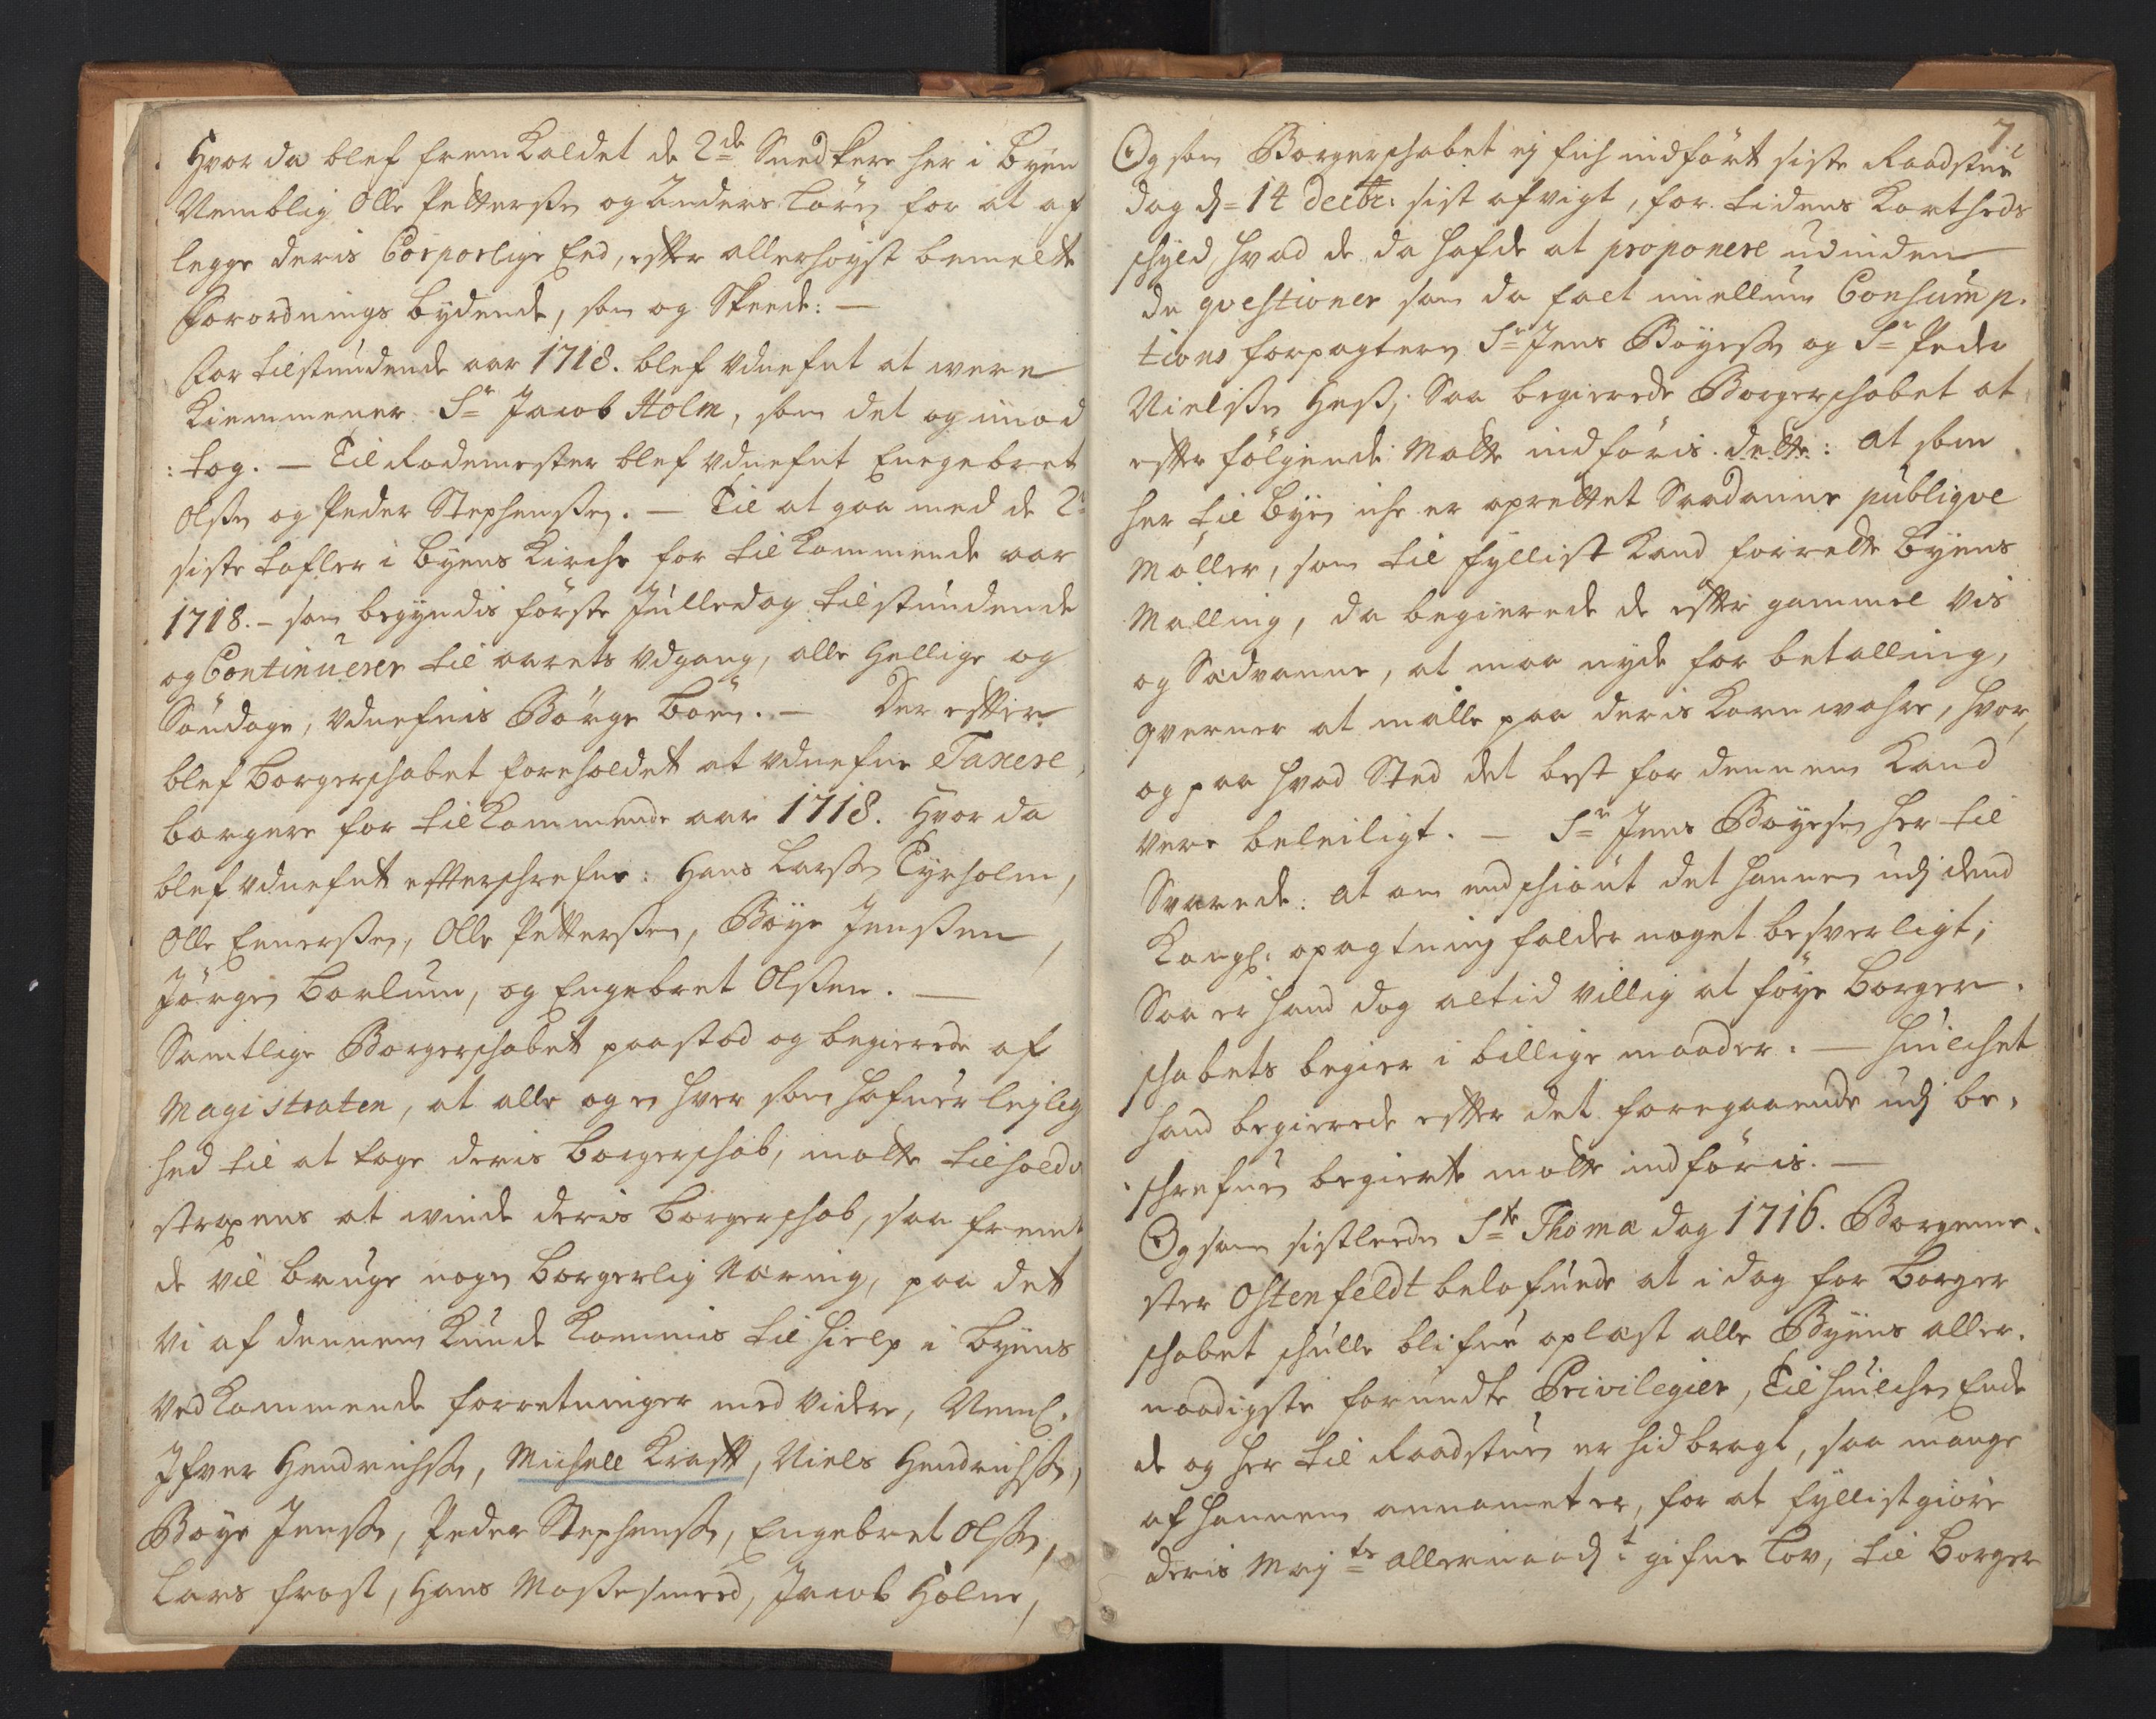 Hvor da blef fremkaldet de 2de Snedkere her i Byen
Nemblig Olle Petterssen og Anders Lorn for at af
legge deris Corporlige Eed, efter allerhøyst bemelte
Forordnings bydende, som og Skeede: —
For tilstundende aar 1718. blef Udnefnt at were
Kiemmener Sr Jacob Holm, som det og imod
: tog. — Til Rodemester blef Udnefnt Engebret
Olssen og Peder Stephenssen. — Til at gaa med de 2de
siste tafler i Byens Kirche for tilkommende aar
1718. – som begyndis første Julledag tilstundende
og Continuerer til aarets Udgang, alle Hellige og
Søndage, Udnefnis Børge Boen. — Der efter
blef Borgerschabet foreholdet at Udnefne Taxere
borgere for tilkommende aar 1718. Hvor da
blef Udnefnt efterschrefne: Hans Larssen Tyrholm,
Olle Ennerssen, Olle Petterssen, Bøye Jenssen,
Jørgen Borlum, og Engebret Olssen. —
Samtlige Borgerschabet paastod og begierede af
Magistraten, at alle og en hver som hafuer leylig
hed til at tage deris Borgerschab, motte tilholdes
strax ens at winde deris Borgerschab, saa fremt
de vil bruge nogen Borgerlig Næring, paa det
Vi af dennem kunde kommis til hielp i Byens
Vedkommende forretninger med Videre, Neml:
Ifver Hendrichss:, Michell Krafft, Niels Hendrichss:,
Bøye Jenss:, Peder Stephenss:, Engebret Olss:,
Lars Frost, Hans Massesmeed, Jacob Holm,
7
Og som Borgerschabet ej fich indført siste Raadstue
dag d= 14 Decbr: sist afvigt, for tidens Kortheds
schyld, hvad de da hafde at proponere udinden
de qvestioner som da falt imellum Consump-
tions forpagteren Sr Jens Bøyess: og Sr Peder
Nielssen Hess; Saa begierede Borgerschabet at
efter følgende Motte indføris. dette: at som
her til Byen iche er oprettet Saadanne publiqve
Møller, som til fyllist kand forrette Byens
Malling, da begierede de efter gammel Vis
og Sædvanne, at maa nyde for betalling,
qverner at malle paa deris Korn wahre, hvor,
og paa hvad Sted det best for dennem Kand
vere beleiligt. — Sr Jens Bøyesen her til
Svarede: at om endschiønt det hannem udj dend
Kongl: opagtning falder noget besverligt;
Saa er hand dog altid villig at føye Borger-
schabets begier i billige maader. — Huilchet
hand begierede efter det foregaaende udj be-
schrefuen begiert motte indføris. —
Og som sistleeden St Thomæ dag 1716. Borgeme-
ster Ostenfeldt belofuede at i dag for Borger
schabet schulle blifue oplæst alle Byens aller-
naadigste forundte Privilegier, Til huilchen Ende
de og her til Raadstuen er hidbragt, saa mange
af hannem annammet er, for at fyllistgiøre
deris Majts allernaadt gifne Lov, til Borger